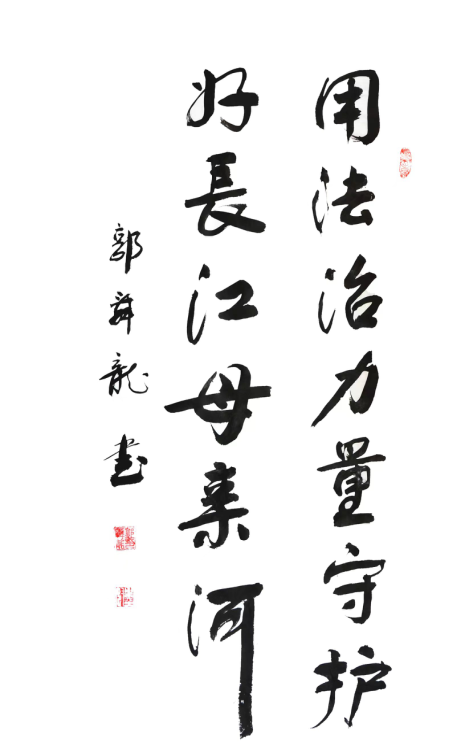 用法治力量守护
好長江母亲河
郭舜龍书